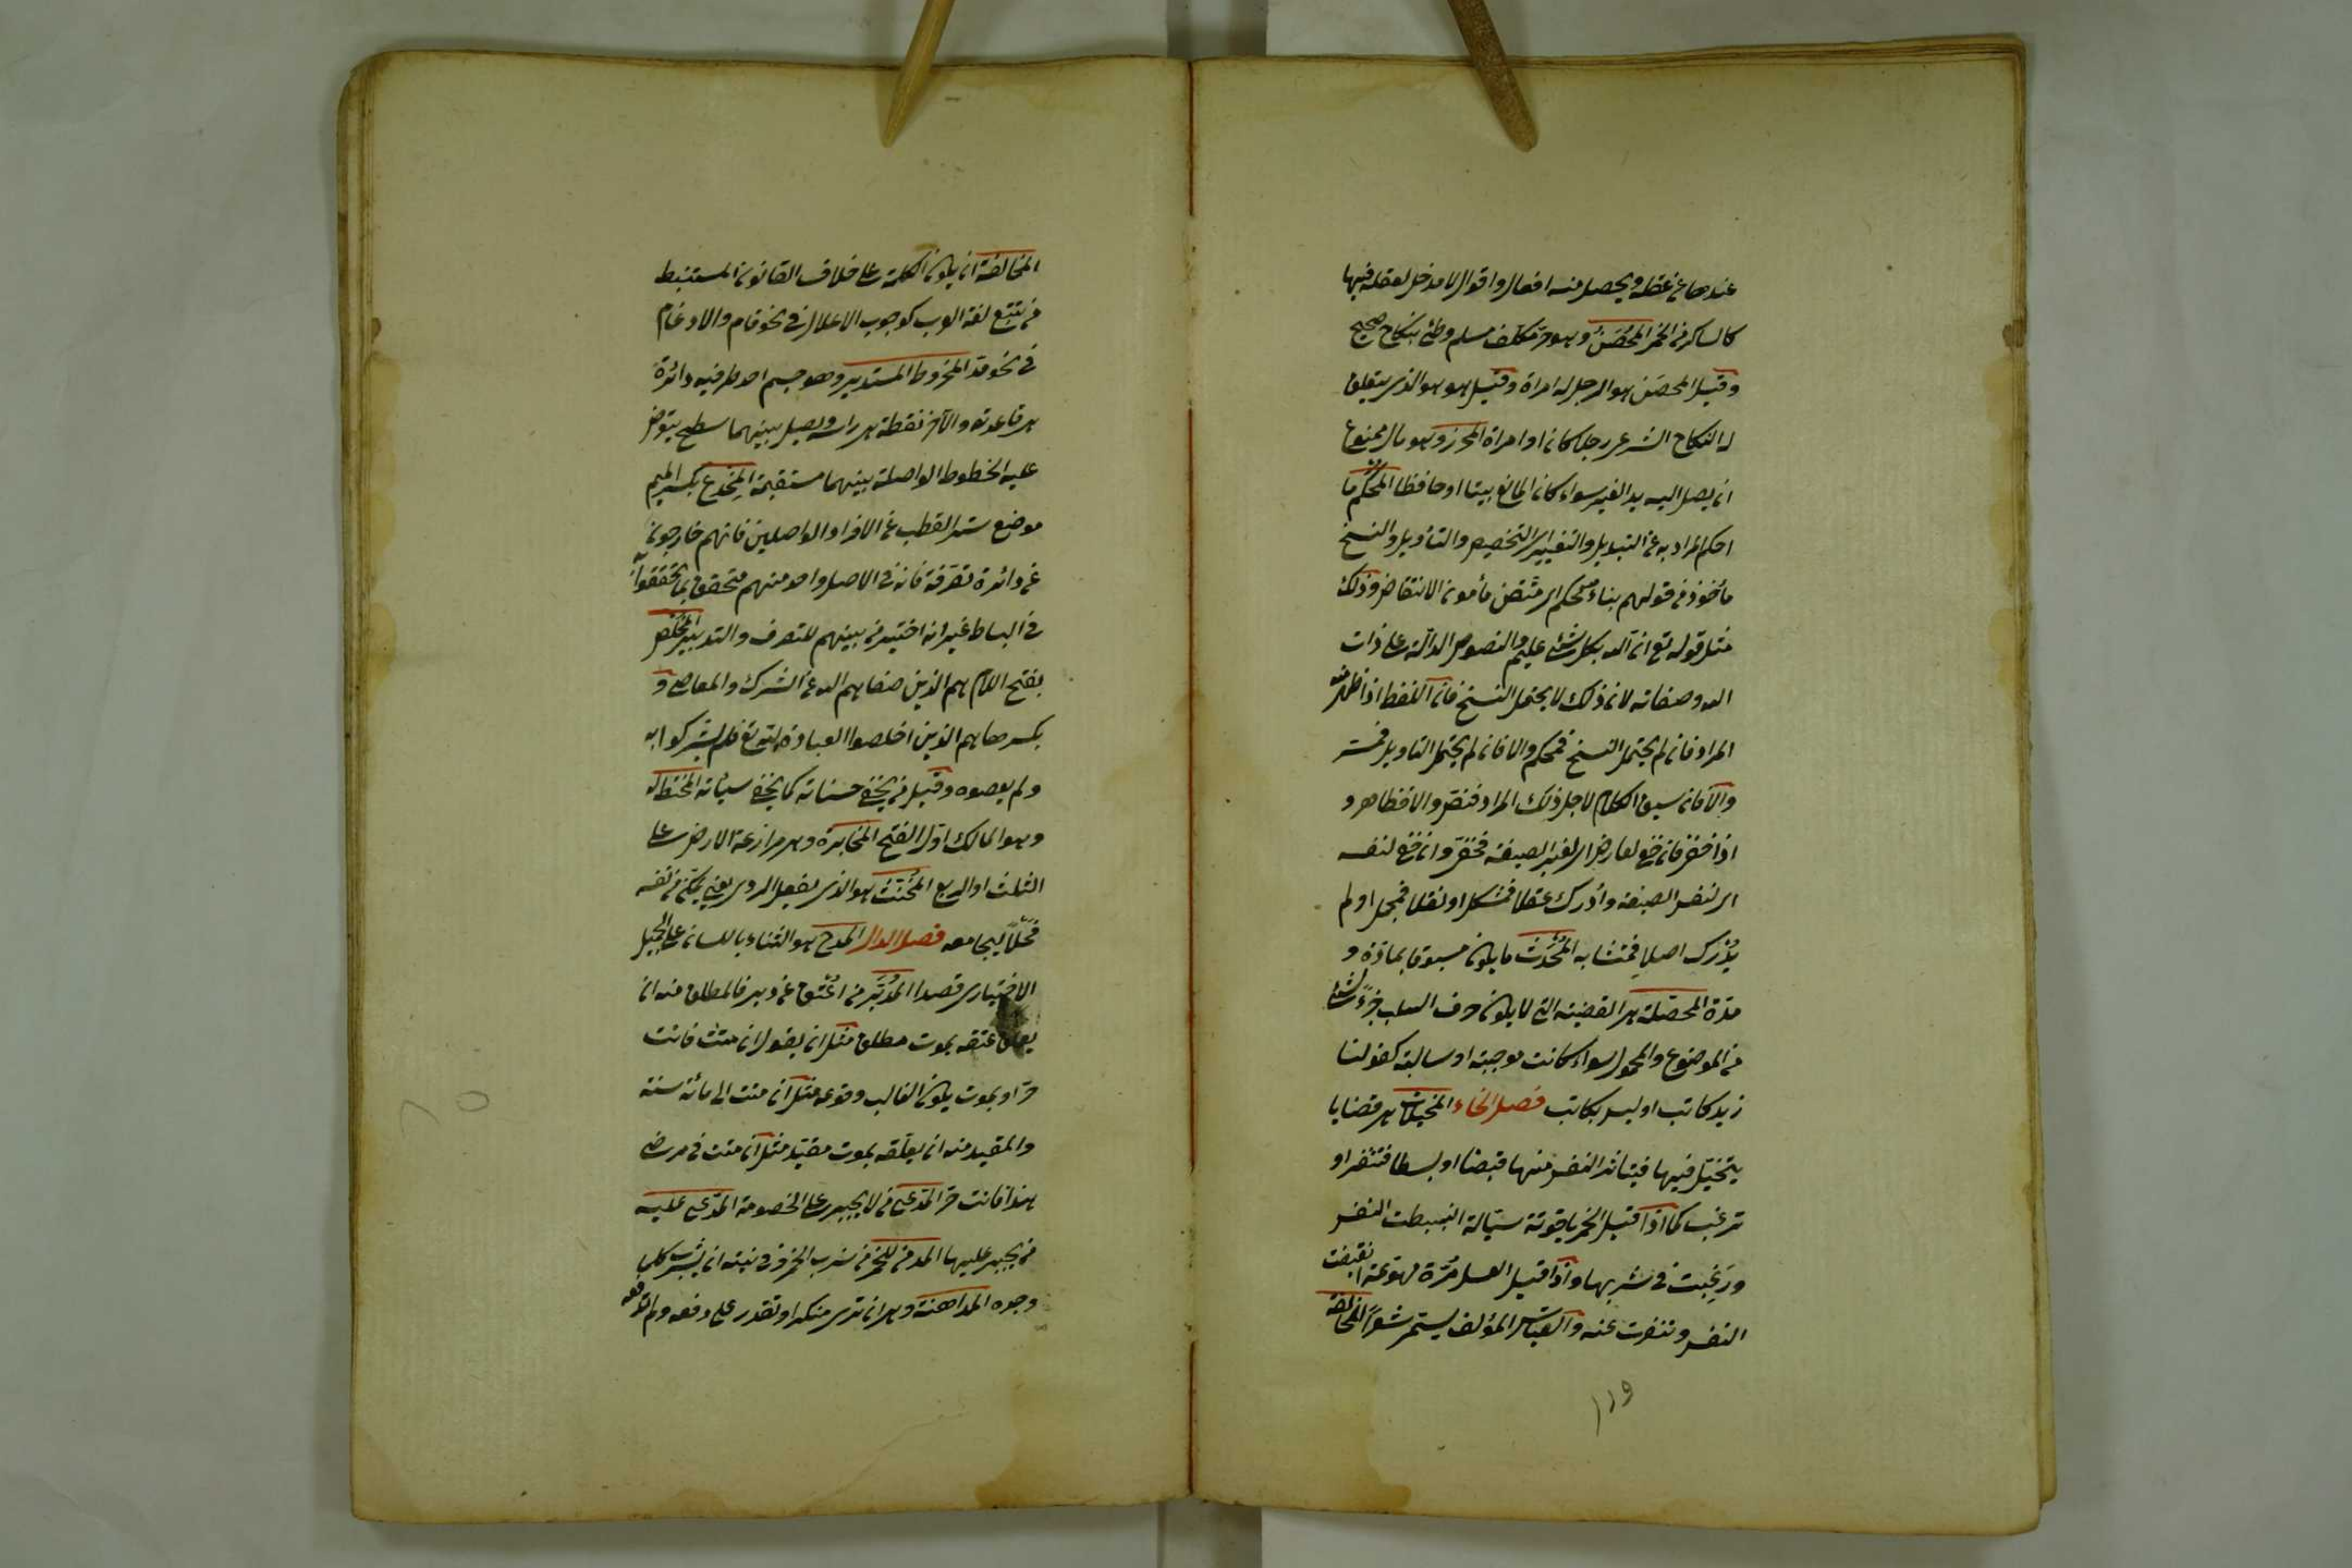 عندها عن عقله ويحصل منه افعال واقوال لا مدخل لعقله فيها
كالسكر من الخمر المحصن وهو حر مكلف مسلم وطئ بنكاح صحيح
وقيل المحصن هو الرجل له امراة وقيل هو هو الذى يتعلق
له النكاح الشرعى رجلا كان او امراة المحرز وهو مال ممنوع
ان يصل اليه يد الغير سواء كان المانع بيتا او حافظا المحكم ما
احكم المراد به عن التبديل والتغيير اى التخصيص والتأويل والنسخ
مأخوذ من قولهم بناء محكم اى متقن مأمون الانتقاض وذلك
مثل قوله تع ان الله بكل شئ عليم والنصوص الدالة على ذات
الله وصفاته لان ذلك لا يحتمل النسخ فان اللفظ اذا ظهر منه
المراد فان لم يحتمل النسخ فمحكم والا فان لم يحتمل التاويل فمفسر
والا فان سيق الكلام لاجل ذلك المراد فنص والا فظاهر و
اذا خفى فان خفى لعارض اى لغير الصيغة فخفى وان خفى لنفسه
اى لنفس الصيغة وأدرك عقلا فمشكل او نقلا فمجمل او لم
يُدرك اصلا فمتشابه المُحْدَث ما يكون مسبوقا بمادة و
مدة المحصلة هى القضية التى لا يكون حرف السلب جزءً لشئ
من الموضوع والمحمول سواء كانت موجبة او سالبة كقولنا
زيد كاتب او ليس بكاتب فصل الخاء المخيلات هى قضايا
يتخيل فيها فيتاثر النفس منها قبضا او بسطا فتنفر او
ترغب كما اذا قيل الخمر ياقوتة سيالة انبسطت النفس
ورغبت فى شربها واذا قيل العسل مُرّة مهوعة انقبضت
النفس وتنفرت عنه والقياس المؤلف يستمر شعراً المخالفة
١١٩
المخالفة ان يكون الكلمة على خلاف القانون المستنبط
من تتبع لغة العرب كوجوب الاعلال فى نحو قام والادغام
فى نحو مد المخروط المستدير وهو جسم احد طرفيه دائرة
هى قاعدته والآخر نقطة هى راسه ويصل بينهما سطح يتوض
عليه الخطوط الواصلة بينهما مستقيمة المِخدع بكسر الميم
موضع ستر القطب عن الافراد الواصلين فانهم خارجون
عن دائرة تصرفه فانه فى الاصل واحد منهم متحقق بما تحققوا به
فى البساط غير انه اختير من بينهم للتصرف والتدبير المخلص
بفتح اللام هم الذين صفاهم الله عن الشرك والمعاصى و
بكسرها هم الذين اخلصوا العبادة لله تع فلم يشركوا به
ولم يعصوه وقيل من يخفى حسناته كما يخفى سيئاته المختط له
وهو المالك اول الفتح المخابرة وهى مزارعة الارض على
الثلث او الربع المُخَنّث هو الذى يفعل الردى يعنى يمكن من نفسه
فحلاً ليجامعه فصل الدال المدح هو الثناء باللسان على الجميل
الاختيارى قصدا المدبر من اعتق عن دبر فالمطلق منه ان
يعلق عتقه بموت مطلق مثل ان يقول ان متُّ فانت
حر او بموت يكون الغالب وقوعه مثل ان متت الى مائة سنة
والمقيد منه ان يعلقه بموت مقيد مثل ان متت فى مرضى
هذا فانت حر المدعى من لا يجبر على الخصومة المدعى عليه
من يجبر عليها المدمن للخمر من شرب الخمر وفى نيته ان يشرب كلما
وجده المداهنة وهى ان ترى منكرا وتقدر على دفعه ولم تدفعه